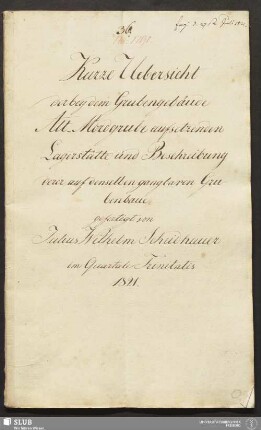 36.
Kurze Uebersicht
der bey dem Grubengebäude
Alt Mordgrube aufsetzenden
Lagerstätte und Beschreibung
derer auf denselben gangbaren Gru
benbaue
gefertigt von
Julius Wilhelm
im Quartale Trinitatis
1821.
SLUB